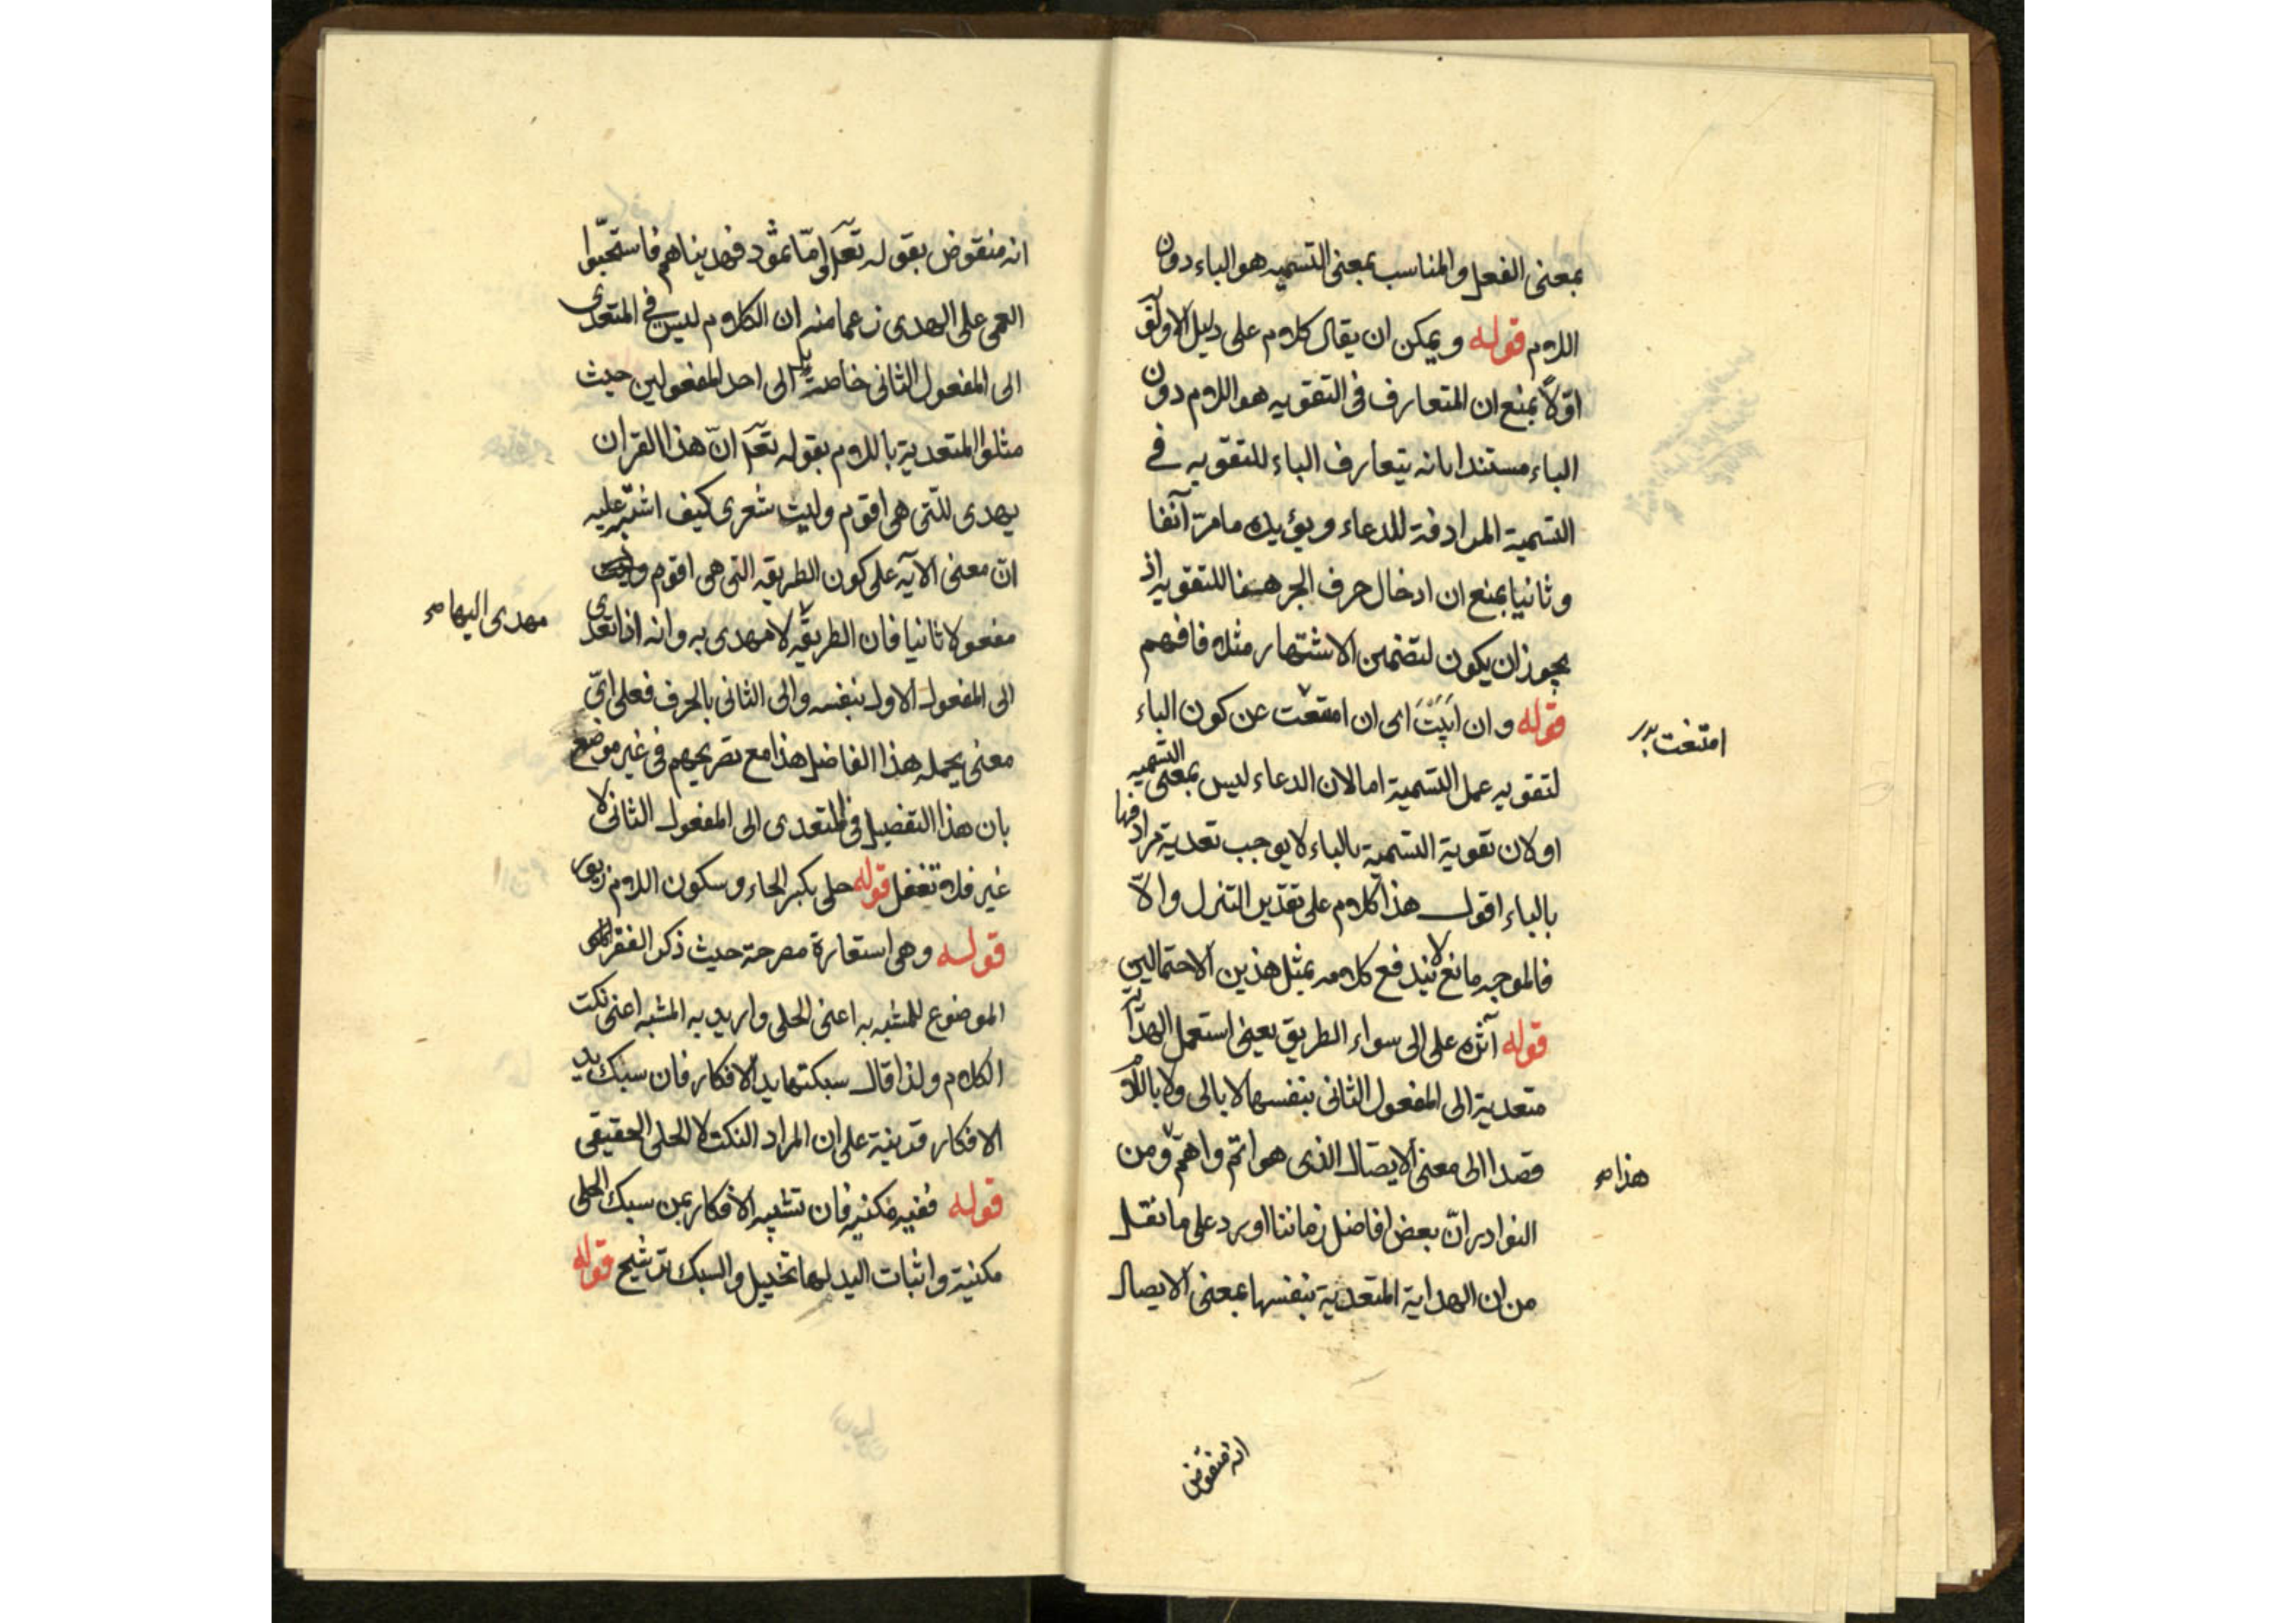 بمعنى الفعل والمناسب بمعنى التسميه هو الباء دون
اللام قوله ويمكن ان يقال كلام على دليل الاولوية
اوّلاً بمنع ان المتعارف فى التقويه هو اللام دون
الباء مستندا بانه يتعارف الباء للتقويه فى
التسمية المرادفة للدعاء ويؤيده مامر آنفا
وثانيا بمنع ان ادخال حرف الجر ههنا للتقويه اذ
يجوز ان يكون لتضمين الاشتهار مثلا فافهم
قوله وان ابيت اى ان امتنعت عن كون الباء
لتقويه عمل التسمية اما لان الدعاء ليس بمعنى التسميه
او لان تقوية التسمية بالباء لا يوجب تعدية مرادفها
بالباء اقول هذا كلام على تقدير التنزل والا
فالموجه مانع لا يندفع كلامه بمثل هذين الاحتمالين
قوله آثره على الى سواء الطريق يعنى استعمل الهداية
متعدية الى المفعول الثانى بنفسها لا بالى ولا باللام
قصدا الى معنى الايصال الذى هو اتم واهم ومن
النوادر انّ بعض افاضل زماننا اورد على ما نقل
من ان الهداية المتعدية بنفسها بمعنى الايصال
امتنعت
هذا صح
انه منقوض
انه منقوض بقوله تعالى وامّا ثمود فهديناهم فاستحبّوا
العمى على الهدى زعما منه ان الكلام ليس فى المتعدى
الى المفعول الثانى خاصة بل الى احد المفعولين حيث
مثلوا المتعدية باللام بقوله تعالى انّ هذا القران
يهدى للتى هى اقوم وليت شعرى كيف اشتبه عليه
انّ معنى الآيه على كون الطريقه التى هى اقوم
مفعولا ثانيا فان الطريقه لا مهدى به وانه اذا تعدى
الى المفعول الاول بنفسه والى الثانى بالحرف فعلى اىّ
معنى يحمله هذا الفاضل هذا مع تصريحهم فى غير موضع
بان هذا التفصيل فى المتعدى الى المفعول الثانى لا
غير فلا تغفل قوله حلى بكسر الحاء وسكون اللام زيور
قوله وهى استعارة مصرحة حيث ذكر
الموضوع للمشبه به اعنى الحلى واريد به المشبه اعنى نكت
الكلام ولذا قال سبكتها يد الافكار فان سبك يد
الافكار قرينة على ان المراد النكت لا الحلى الحقيقى
قوله ففيه مكنيه فان تشبيه الافكار بمن سبك الحلى
مكنية واثبات اليد لها تخييل والسبك ترشيح قوله
مهدى اليها صح